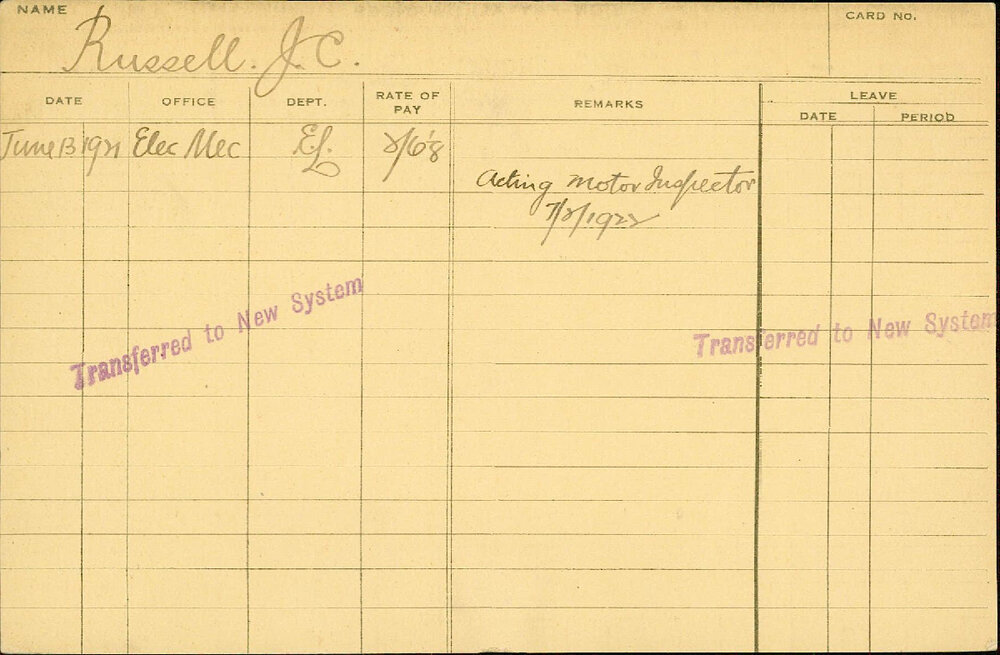 NAME
Russell. J. C.
CARD No.
DATE OFFICE DEPT. RATE OF PAY REMARKS LEAVE
DATE PERIOD
June 13 1921 Elec Mec El.
Acting Motor Inspector
7/2/1922
Transferred to New System
Transferred to New System